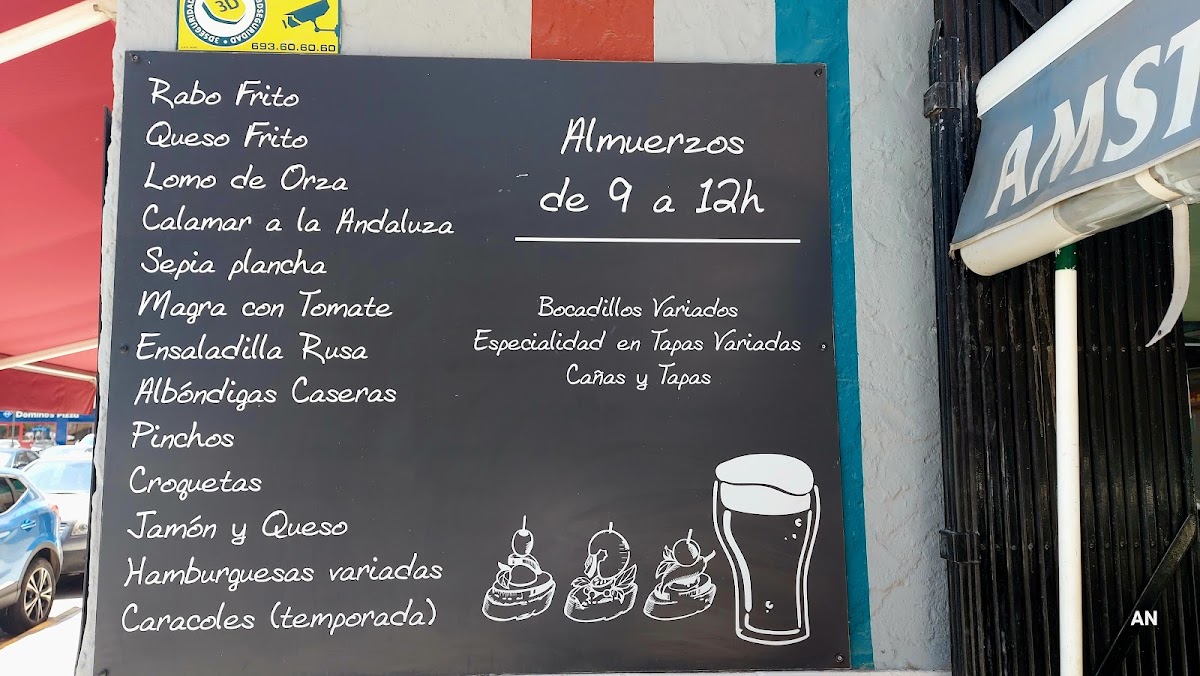 3D
3DSEGURIDAD
693.60.60.60
Rabo Frito
Queso Frito
Lomo de Orza
Calamar a la Andaluza
Sepia plancha
Magra con Tomate
Ensaladilla Rusa
Albóndigas Caseras
Pinchos
Croquetas
Jamón y Queso
Hamburguesas variadas
Caracoles (temporada)
Almuerzos
de 9 a 12h
Bocadillos Variados
Especialidad en Tapas Variadas
Cañas y Tapas
AMST
Domino's Pizza
AN